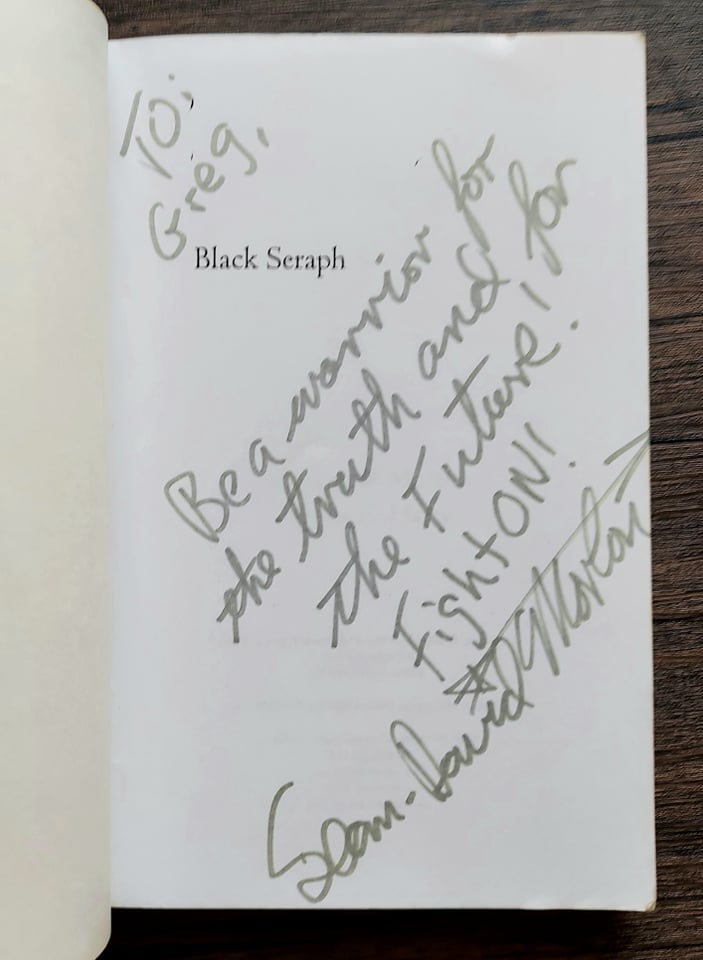 TO:
Greg,
Black Seraph
Be a warrior for
the truth and for
the Future!
Fight ON!
Sean-David Morton